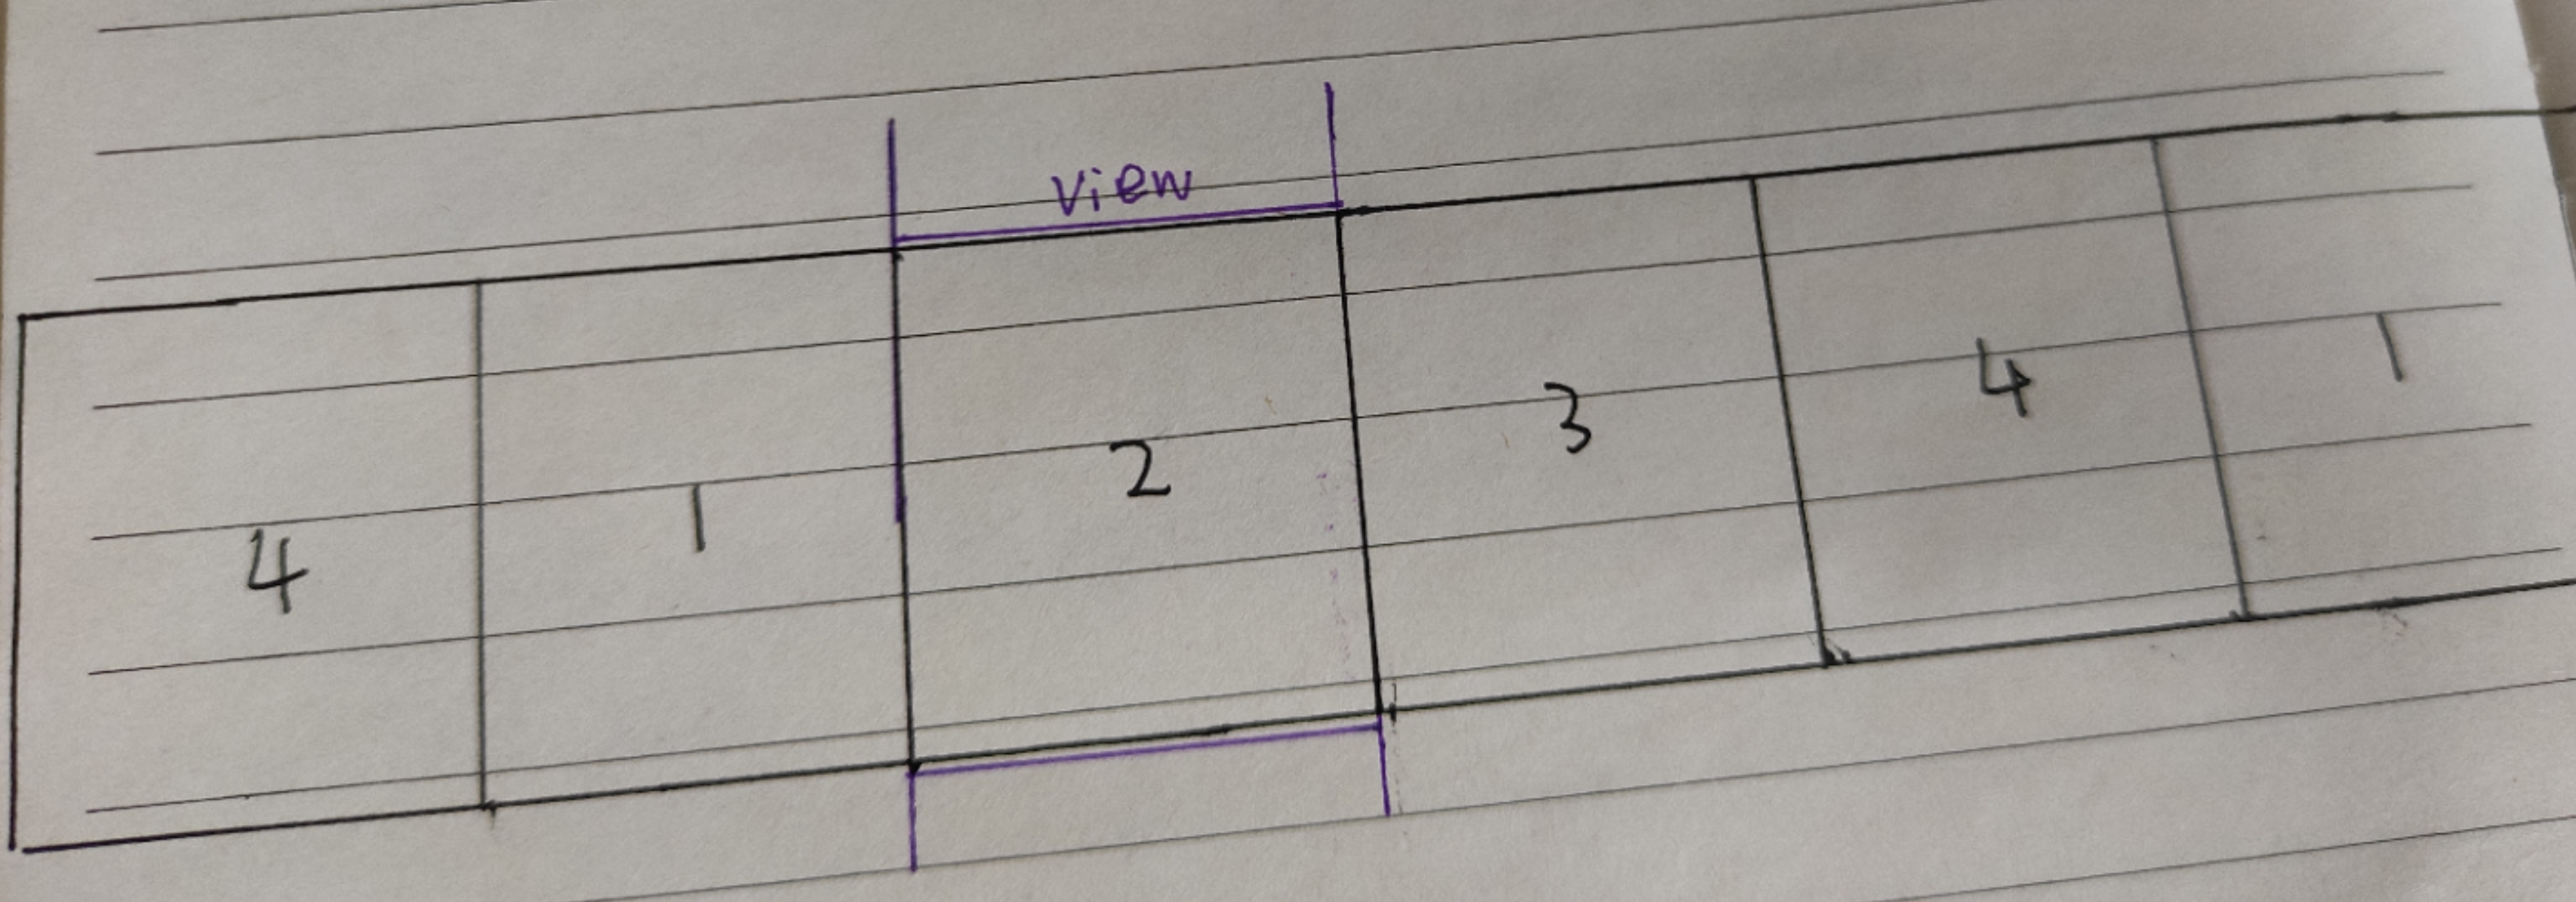 view
4 1 2 3 4 1